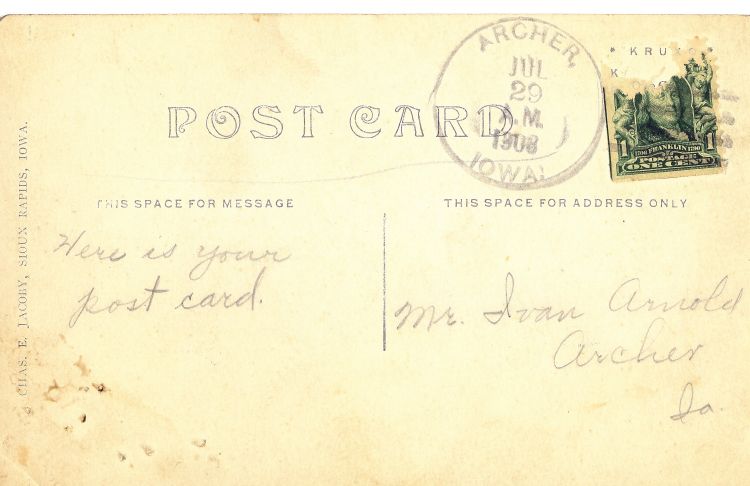 ARCHER,
JUL
29
A.M.
1908
IOWA.
* KRUXO *
POST CARD
1706 FRANKLIN 1790
POSTAGE
1 ONE CENT 1
THIS SPACE FOR MESSAGE
THIS SPACE FOR ADDRESS ONLY
Here is your
post card.
Mr. Ivan Arnold
Archer
Ia.
CHAS. E. JACOBY, SIOUX RAPIDS, IOWA.